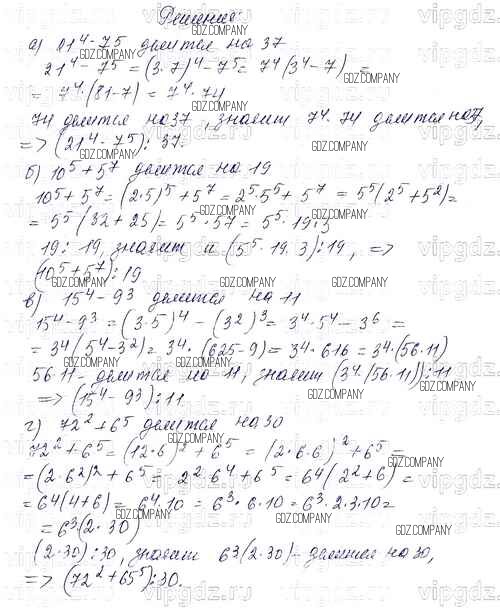 Решение:
а) 21⁴ - 7⁵ делится на 37
21⁴ - 7⁵ = (3·7)⁴ - 7⁵ = 7⁴(3⁴ - 7) =
= 7⁴·(81-7) = 7⁴·74
74 делится на 37, значит 7⁴·74 делится на 37,
=> (21⁴ - 7⁵) ⋮ 37.
б) 10⁵ + 5⁷ делится на 19
10⁵ + 5⁷ = (2·5)⁵ + 5⁷ = 2⁵·5⁵ + 5⁷ = 5⁵(2⁵ + 5²) =
= 5⁵(32 + 25) = 5⁵·57 = 5⁵·19·3
19 ⋮ 19, значит и (5⁵·19·3) ⋮ 19, =>
(10⁵ + 5⁷) ⋮ 19
в) 15⁴ - 9³ делится на 11
15⁴ - 9³ = (3·5)⁴ - (3²)³ = 3⁴·5⁴ - 3⁶ =
= 3⁴(5⁴ - 3²) = 3⁴·(625-9) = 3⁴·616 = 3⁴(56·11)
56·11 - делится на 11, значит (3⁴(56·11)) ⋮ 11
=> (15⁴ - 9³) ⋮ 11
г) 72² + 6⁵ делится на 30
72² + 6⁵ = (12·6)² + 6⁵ = (2·6·6)² + 6⁵ =
= (2·6²)² + 6⁵ = 2²·6⁴ + 6⁵ = 6⁴(2² + 6) =
= 6⁴(4+6) = 6⁴·10 = 6³·6·10 = 6³·2·3·10 =
= 6³(2·30)
(2·30) ⋮ 30, значит 6³(2·30) - делится на 30,
=> (72² + 65⁵) ⋮ 30.
GDZ.COMPANY
vipgdz.ru